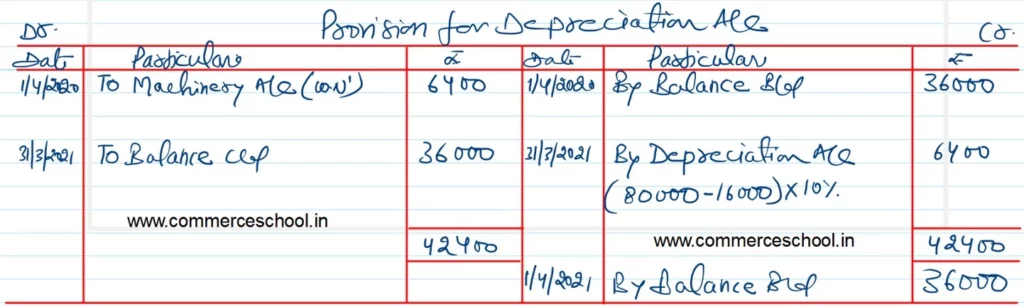 Provision for Depreciation A/c
Dr. Cr.
Date Particulars ₹ Date Particulars ₹
1/4/2020 To Machinery A/c (WN1) 6400 1/4/2020 By Balance B/d 36000
31/3/2021 To Balance c/d 36000 31/3/2021 By Depreciation A/c 6400
(80000-16000)×10%.
www.commerceschool.in
www.commerceschool.in
42400 42400
1/4/2021 By Balance B/d 36000